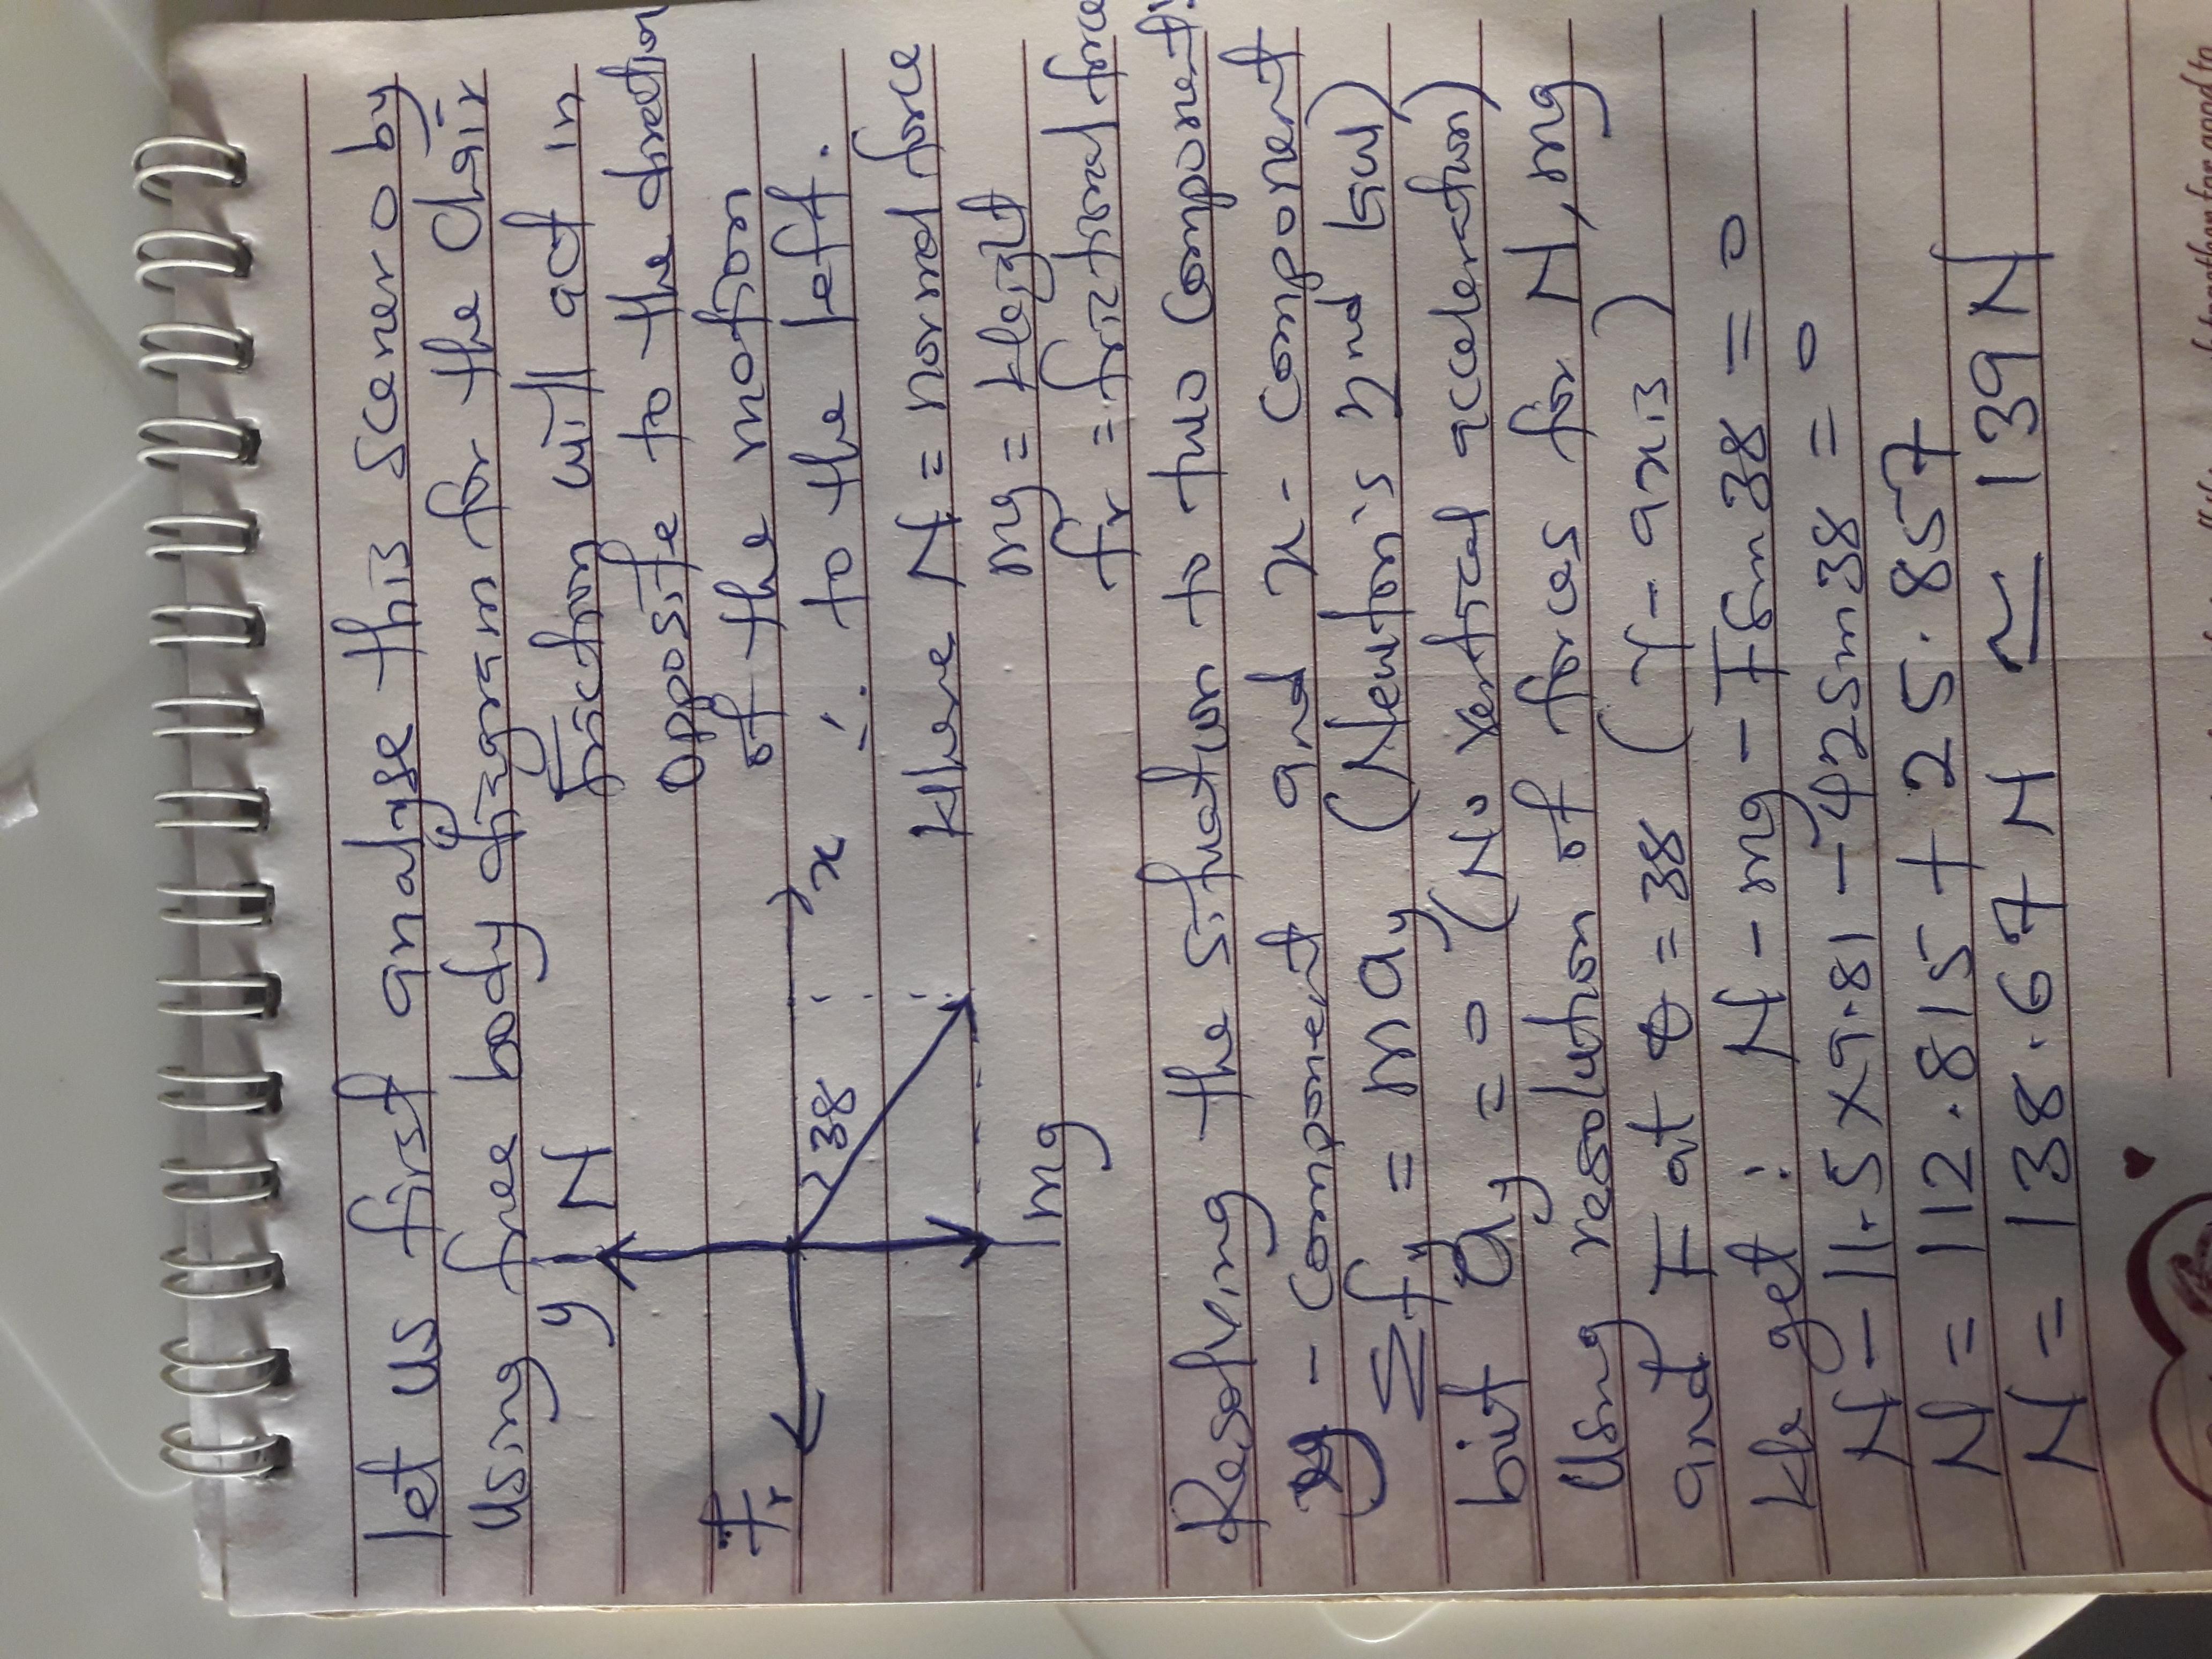 let us first analyse this scenero by
using free body diagram for the chair
y N
friction will act in
opposite to the direction
of the motion
∴ to the left.
Fr
38
x
mg
Where N = normal force
mg = Weight
fr = frictional force
Resolving the situation to two component
y - component and x - component
Σfy = may (Newton's 2nd law)
but ay = 0 (No vertical acceleration)
Using resolution of forces for N, mg
and F at θ = 38 (y - axis)
We get : N - mg - Fsin38 = 0
N - 11.5 x 9.81 - 42sin38 = 0
N = 112.815 + 25.857
N = 138.67 N ≃ 139 N